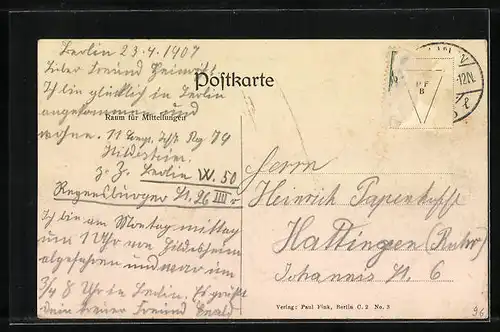 Berlin 23.4.1907
Lieber Freund Heinrich
Ich bin glücklich in Berlin
angekommen und
wohne. 11 Comp. Inft. Rg 79
Hildesheim
z. Z. Berlin W. 50
Regensburger St. 26 III r
Ich bin am Montag mittag
um 1 Uhr von Hildesheim
abgefahren und war um
3/4 8 Uhr in Berlin. Es grüßt
dein treuer Freund Ewald
Postkarte
Raum für Mitteilungen
Herrn
Heinrich
Hattingen (Ruhr)
Johannis St. 6
Verlag: Paul Fink, Berlin C. 2 No. 3
-12N.
B
96